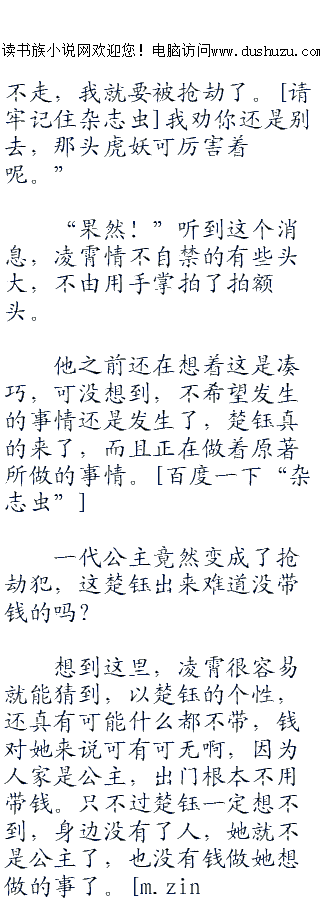 读书族小说网欢迎您！电脑访问www.dushuzu.com
不走，我就要被抢劫了。[请
牢记住杂志虫]我劝你还是别
去，那头虎妖可厉害着
呢。”
“果然！”听到这个消
息，凌霄情不自禁的有些头
大，不由用手掌拍了拍额
头。
他之前还在想着这是凑
巧，可没想到，不希望发生
的事情还是发生了，楚钰真
的来了，而且正在做着原著
所做的事情。[百度一下“杂
志虫”]
一代公主竟然变成了抢
劫犯，这楚钰出来难道没带
钱的吗？
想到这里，凌霄很容易
就能猜到，以楚钰的个性，
还真有可能什么都不带，钱
对她来说可有可无啊，因为
人家是公主，出门根本不用
带钱。只不过楚钰一定想不
到，身边没有了人，她就不
是公主了，也没有钱做她想
做的事了。[m.zin